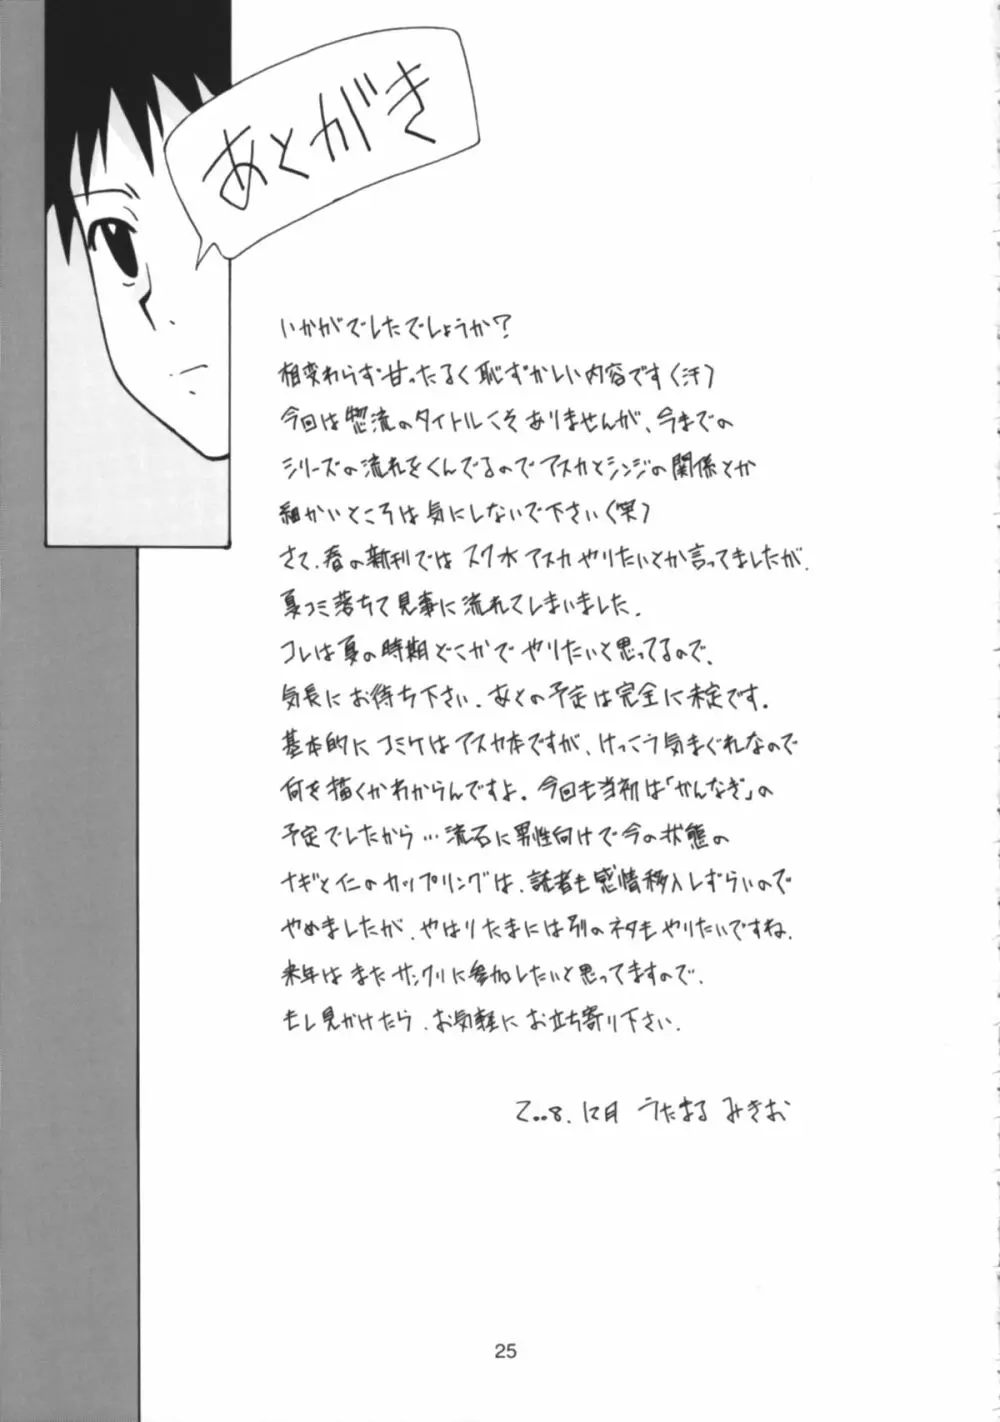 あとがき
いかがでしたでしょうか？
相変わらず甘ったるく恥ずかしい内容です（汗）
今回は惣流のタイトルこそありませんが、今までの
シリーズの流れをくんでるのでアスカとシンジの関係とか
細かいところは気にしないで下さい（笑）
さて、春の新刊ではスク水アスカやりたいとか言ってましたが、
夏コミ落ちて見事に流れてしまいました。
コレは夏の時期どこかでやりたいと思ってるので、
気長にお待ち下さい。あとの予定は完全に未定です。
基本的にコミケはアスカ本ですが、けっこう気まぐれなので
何を描くかわからんですよ。今回も当初は「かんなぎ」の
予定でしたから…流石に男性向けで今の状態の
ナギと仁のカップリングは、読者も感情移入しずらいので
やめましたが、やはりたまには別のネタもやりたいですね。
来年はまたサンクリに参加したいと思ってますので、
もし見かけたら、お気軽にお立ち寄り下さい。
2008.12月 うたまる みきお
25